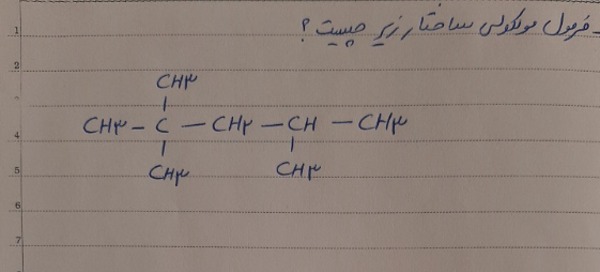 1 ـ فرمول مولکولی ساختار زیر چیست؟
2 CH۳
3
4 CH۳ — C — CH۲ — CH — CH۳
5 CH۳ CH۳
6
7